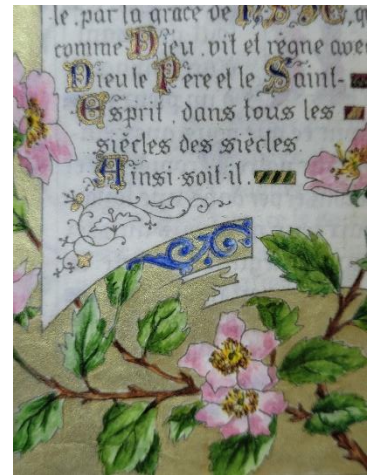 le, par la grâce de N.S.J.C., q
comme Dieu, vit et règne avec
Dieu le Père et le Saint-
Esprit, dans tous les
siècles des siècles.
Ainsi soit-il.